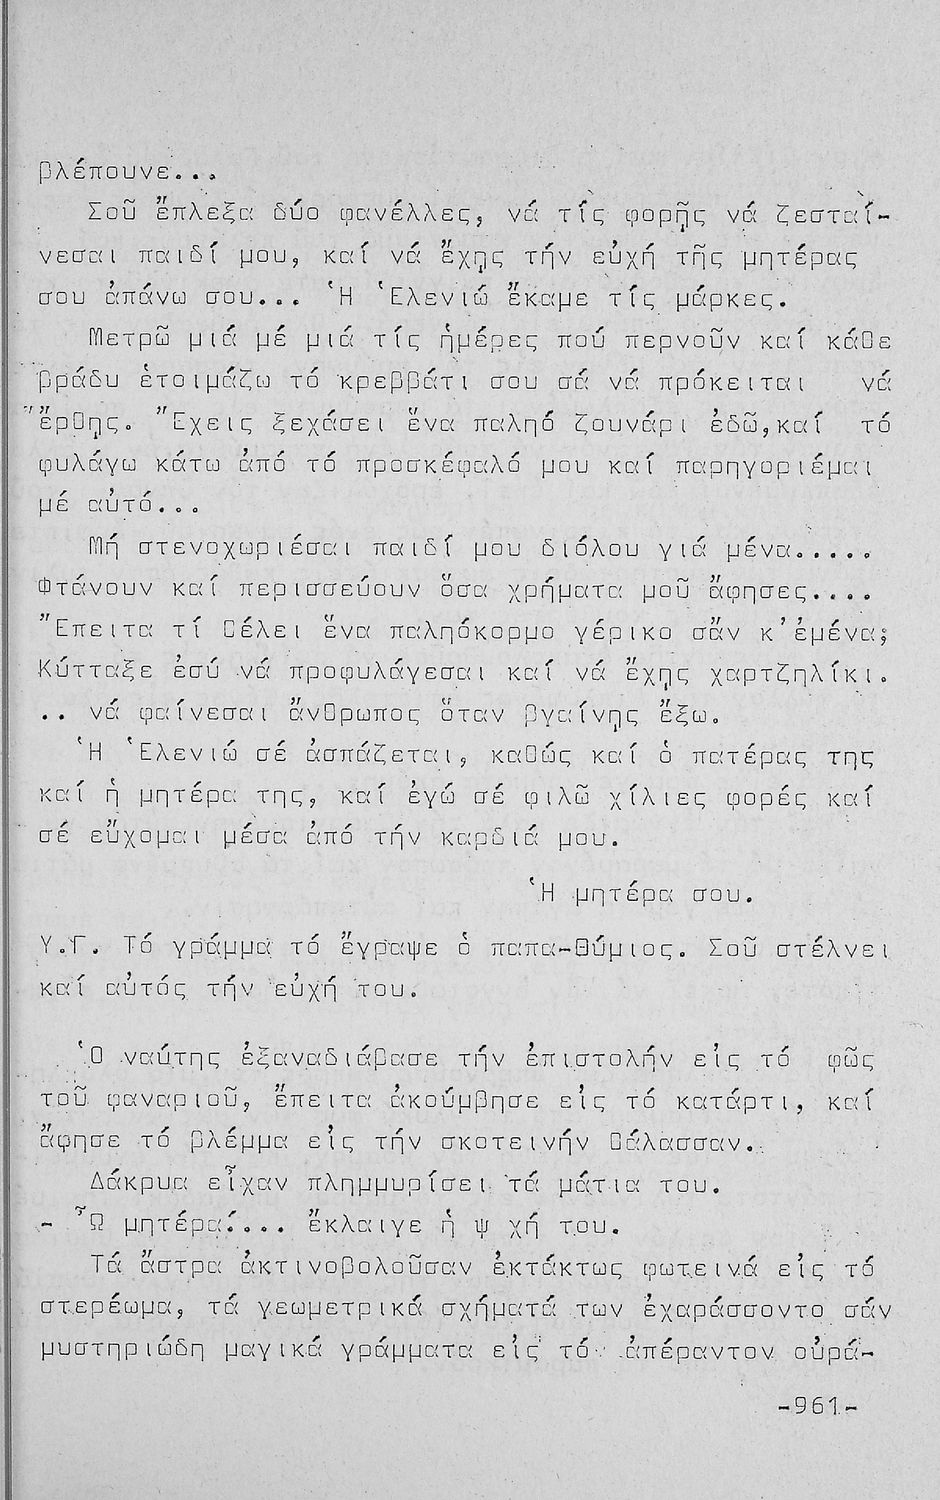 βλέπουνε...
Σοῦ ἔπλεξα δύο φανέλλες, νά τίς φορῇς νά ζεσταί-
νεσαι παιδί μου, καί νά ἔχῃς τήν εὐχή τῆς μητέρας
σου ἀπάνω σου... Ἡ Ἑλενιώ ἔκαμε τίς μάρκες.
Μετρῶ μιά μέ μιά τίς ἡμέρες πού περνοῦν καί κάθε
βράδυ ἑτοιμάζω τό κρεββάτι σου σά νά πρόκειται νά
ἔρθῃς. Ἔχεις ξεχάσει ἕνα παληό ζουνάρι ἐδῶ,καί τό
φυλάγω κάτω ἀπό τό προσκέφαλό μου καί παρηγοριέμαι
μέ αὐτό...
Μή στενοχωριέσαι παιδί μου διόλου γιά μένα.....
Φτάνουν καί περισσεύουν ὅσα χρήματα μοῦ ἄφησες....
Ἔπειτα τί θέλει ἕνα παληόκορμο γέρικο σἄν κ'ἐμένα;
Κύτταξε ἐσύ νά προφυλάγεσαι καί νά ἔχῃς χαρτζηλίκι.
.. νά φαίνεσαι ἄνθρωπος ὅταν βγαίνῃς ἔξω.
Ἡ Ἑλενιώ σέ ἀσπάζεται, καθώς καί ὁ πατέρας της
καί ἡ μητέρα της, καί ἐγώ σέ φιλῶ χίλιες φορές καί
σέ εὔχομαι μέσα ἀπό τήν καρδιά μου.
Ἡ μητέρα σου.
Υ.Γ. Τό γράμμα τό ἔγραψε ὁ παπα-Θύμιος. Σοῦ στέλνει
καί αὐτός τήν εὐχή του.
Ὁ ναύτης ἐξαναδιάβασε τήν ἐπιστολήν εἰς τό φῶς
τοῦ φαναριοῦ, ἔπειτα ἀκούμβησε εἰς τό κατάρτι, καί
ἄφησε τό βλέμμα εἰς τήν σκοτεινήν θάλασσαν.
Δάκρυα εἶχαν πλημμυρίσει τά μάτια του.
- Ὦ μητέρα!... ἔκλαιγε ἡ ψ χή του.
Τά ἄστρα ἀκτινοβολοῦσαν ἐκτάκτως φωτεινά εἰς τό
στερέωμα, τά γεωμετρικά σχήματά των ἐχαράσσοντο σάν
μυστηριώδη μαγικά γράμματα εἰς τό ἀπέραντον οὐρά-
-961-